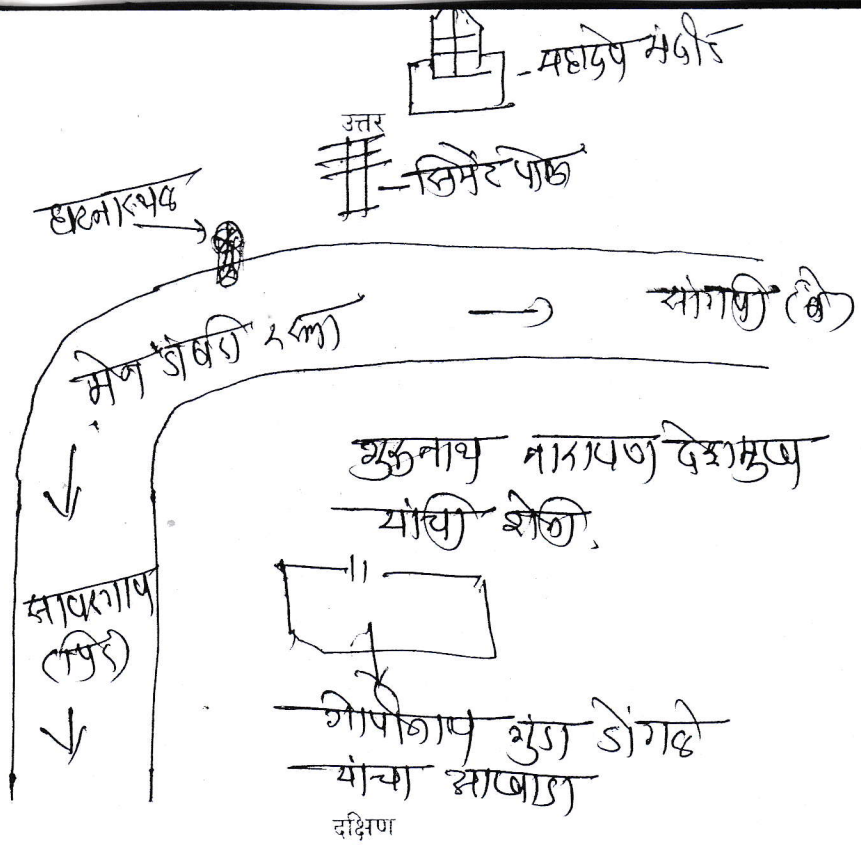 महादेव मंदीर
उत्तर
सिमेंट पोल
घटनास्थळ
सांगवी (बे)
मेन डांबरी रस्ता
गुरुनाथ नारायण देशमुख
यांची शेती.
सावरगाव
(पिर)
गोपीनाथ गुंडा डोंगळे
यांचा आखाडा
दक्षिण